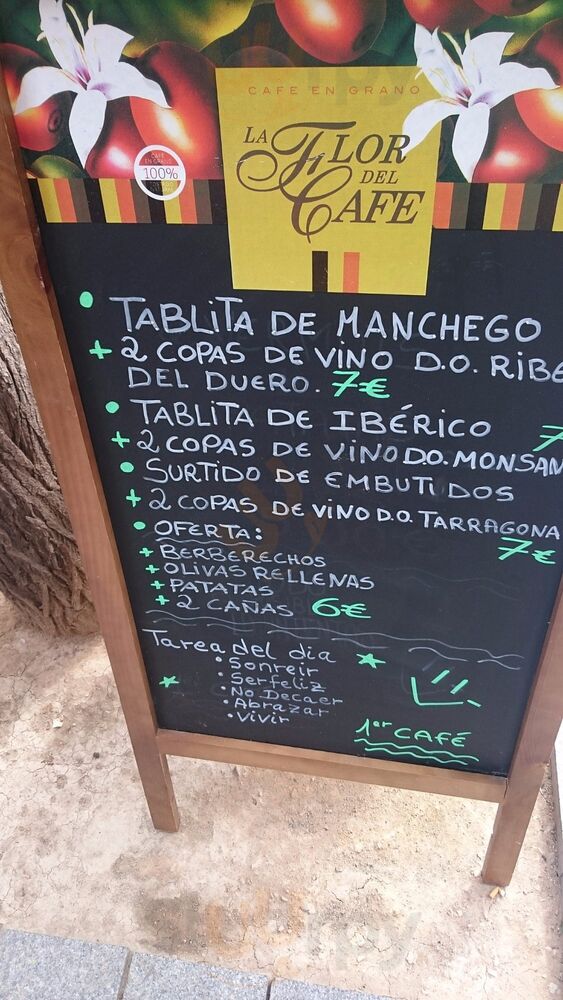 CAFE EN GRANO
LA FLOR
DEL
CAFE
CAFE
EN GRANO
100%
• TABLITA DE MANCHEGO
+ 2 COPAS DE VINO D.O. RIBE
DEL DUERO. 7€
• TABLITA DE IBÉRICO 7
+ 2 COPAS DE VINO D.O. MONSAN
• SURTIDO DE EMBUTIDOS
+ 2 COPAS DE VINO D.O. TARRAGONA
7€
• OFERTA:
+ BERBERECHOS
+ OLIVAS RELLENAS
+ PATATAS
+ 2 CAÑAS 6€
Tarea del dia
• Sonreir
• Serfeliz
• No Decaer
• Abrazar
• Vivir
1er CAFÉ